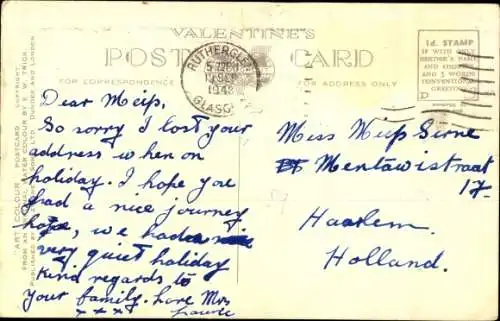 VALENTINE'S
POST CARD
FOR CORRESPONDENCE
FOR ADDRESS ONLY
1d. STAMP
IF WITH ONLY
SENDER'S NAME
AND
AND 5 WORDS
CONVENTIONAL
GREETING
RUTHERGLEN
GLASGOW
"ART COLOUR" POSTCARD
FROM AN ORIGINAL WATER COLOUR BY E. W. TRICK.
PUBLISHED BY SONS LTD. DUNDEE AND LONDON
Dear Meiss.
So sorry I lost your
address when on
holiday. I hope you
had a nice journey
we had a
very quiet holiday
Kind regards to
your family. love Mrs
x x x
Miss Miess Serne
Mentawistraat
17.
Haarlem.
Holland.